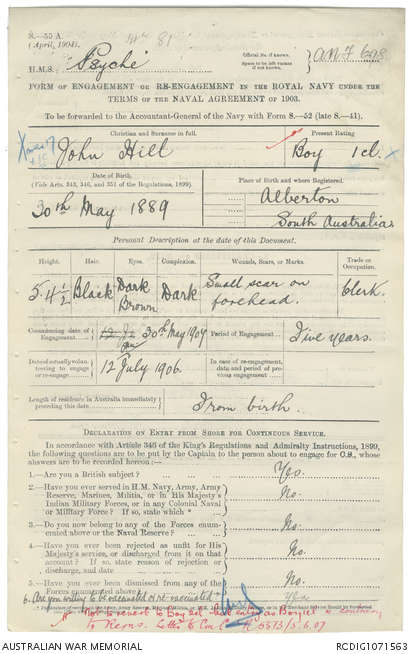 S.—55 A
(April, 1904).
H.M.S. Psyche
Official No. if known.
Space to be left vacant if not known.
A.N.F 698
FORM OF ENGAGEMENT OR RE-ENGAGEMENT IN THE ROYAL NAVY UNDER THE
TERMS OF THE NAVAL AGREEMENT OF 1903.
To be forwarded to the Accountant-General of the Navy with Form S.—52 (late S.—41).
Christian and Surname in full.
Present Rating
John Hill
Boy 1 cl.
Date of Birth.
(Vide Arts. 343, 346, and 351 of the Regulations, 1899)
Place of Birth and where Registered.
30th May 1889
Alberton
South Australia
Personal Description at the date of this Document.
Height. Hair. Eyes. Complexion. Wounds, Scars, or Marks. Trade or Occupation.
5.4½ Black Dark Brown Dark Small scar on forehead. Clerk.
Commencing date of Engagement
30th May 1907
Period of Engagement
Five years.
Date of actually volunteering to engage or re-engage
12 July 1906.
In case of re-engagement, date and period of previous engagement
Length of residence in Australia immediately preceding this date
From birth.
DECLARATION ON ENTRY FROM SHORE FOR CONTINUOUS SERVICE.
In accordance with Article 345 of the King's Regulations and Admiralty Instructions, 1899,
the following questions are to be put by the Captain to the person about to engage for C.S., whose
answers are to be recorded hereon:—
1.—Are you a British subject?
Yes.
2.—Have you ever served in H.M. Navy, Army, Army
Reserve, Marines, Militia, or in His Majesty's
Indian Military Forces, or in any Colonial Naval
or Military Force? If so, state which *
No.
3.—Do you now belong to any of the Forces enumerated
above or the Naval Reserve?
No.
4.—Have you ever been rejected as unfit for His
Majesty's service, or discharged from it on that
account? If so, state reason of rejection or
discharge, and date
No.
5.—Have you ever been dismissed from any of the
Forces enumerated above?
No.
6. Are you willing to be vaccinated or re-vaccinated?
Yes
AUSTRALIAN WAR MEMORIAL
RCDIG1071563